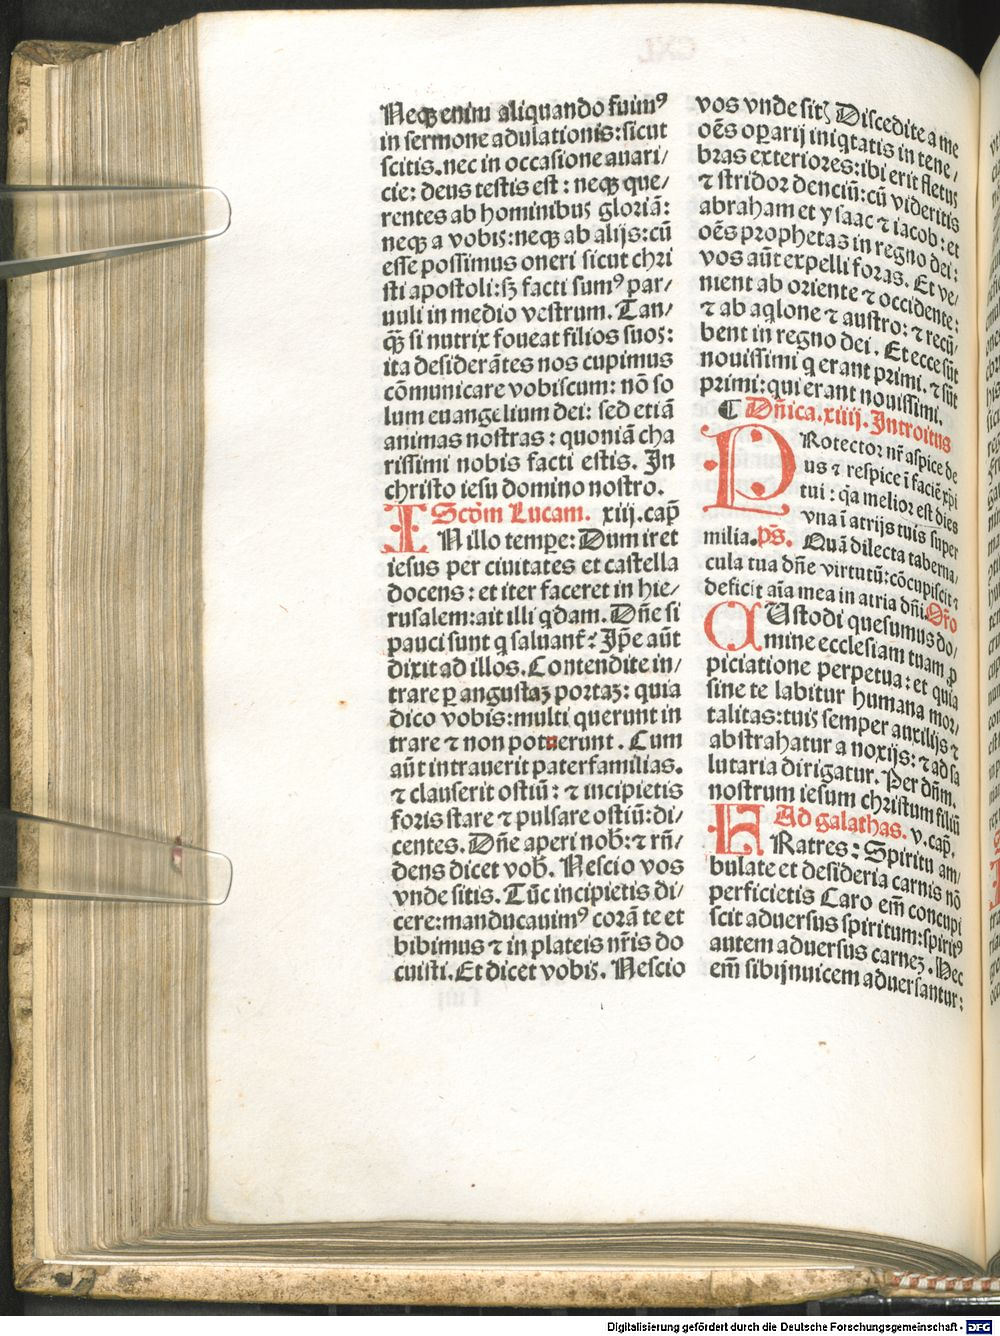 Neqꝫ enim aliquando fuimꝰ
in sermone adulationis: sicut
scitis. nec in occasione auari/
cie: deus testis est: neqꝫ que/
rentes ab hominibus gloriā:
neqꝫ a vobis: neqꝫ ab alijs: cū
esse possimus oneri sicut chri
sti apostoli: sꝫ facti sumꝰ par/
uuli in medio vestrum. Tan/
qꝫ̄ si nutrix foueat filios suos:
ita desiderātes nos cupimus
cōmunicare vobiscum: nō so
lum euangelium dei: sed etiā
animas nostras: quoniā cha
rissimi nobis facti estis. In
christo iesu domino nostro.
Scd̄m Lucam. xiij. cap̄
IN illo tempe: Dum iret
iesus per ciuitates et castella
docens: et iter faceret in hie/
rusalem: ait illi qdam. Dn̄e si
pauci sunt q saluant̄: Ipe aūt
dixit ad illos. Contendite in/
trare ꝑ angustaꝫ portaꝫ: quia
dico vobis: multi querunt in
trare ⁊ non potuerunt. Cum
aūt intrauerit paterfamilias.
⁊ clauserit ostiū: ⁊ incipietis
foris stare ⁊ pulsare ostiū: di/
centes. Dn̄e aperi nob̄: ⁊ rn̄/
dens dicet vob̄. Nescio vos
vnde sitis. Tūc incipietis di/
cere: manducauimꝰ corā te et
bibimus ⁊ in plateis nr̄is do
cuisti. Et dicet vobis. Nescio
vos vnde sitꝭ Discedite a me
oēs oꝑarij iniqtatis in tene/
bras exteriores: ibi erit fletus
⁊ stridor denciū: cū videritis
abraham et ysaac ⁊ iacob: et
oēs prophetas in regno dei:
vos aūt expelli foras. Et ve/
nient ab oriente ⁊ occidente:
⁊ ab aqlone ⁊ austro: ⁊ recū/
bent in regno dei. Et ecce sūt
nouissimi q erant primi. ⁊ sūt
primi: qui erant nouissimi.
¶ Dn̄ica. xiiij. Introitus
PRotector nr̄ aspice de
us ⁊ respice ī faciē xp̄i
tui: qa melior est dies
vna ī atrijs tuis super
milia. ps̄. Quā dilecta taberna/
cula tua dn̄e virtutū: cōcupiscit ⁊
deficit aīa mea in atria dn̄i. Or̄o
CUstodi quesumus do/
mine ecclesiam tuam ꝓ
piciatione perpetua: et quia
sine te labitur humana mor/
talitas: tuis semper auxilijs ⁊
abstrahatur a noxijs: ⁊ ad sa
lutaria dirigatur. Per dn̄m.
nostrum iesum christum filiū
Ad galathas. v. cap̄.
FRatres: Spiritu am/
bulate et desideria carnis nō
perficietis Caro em̄ concupi
scit aduersus spiritum: spiritꝰ
autem aduersus carneꝫ. Hec
em̄ sibijnuicem aduersantur:
Digitalisierung gefördert durch die Deutsche Forschungsgemeinschaft - DFG